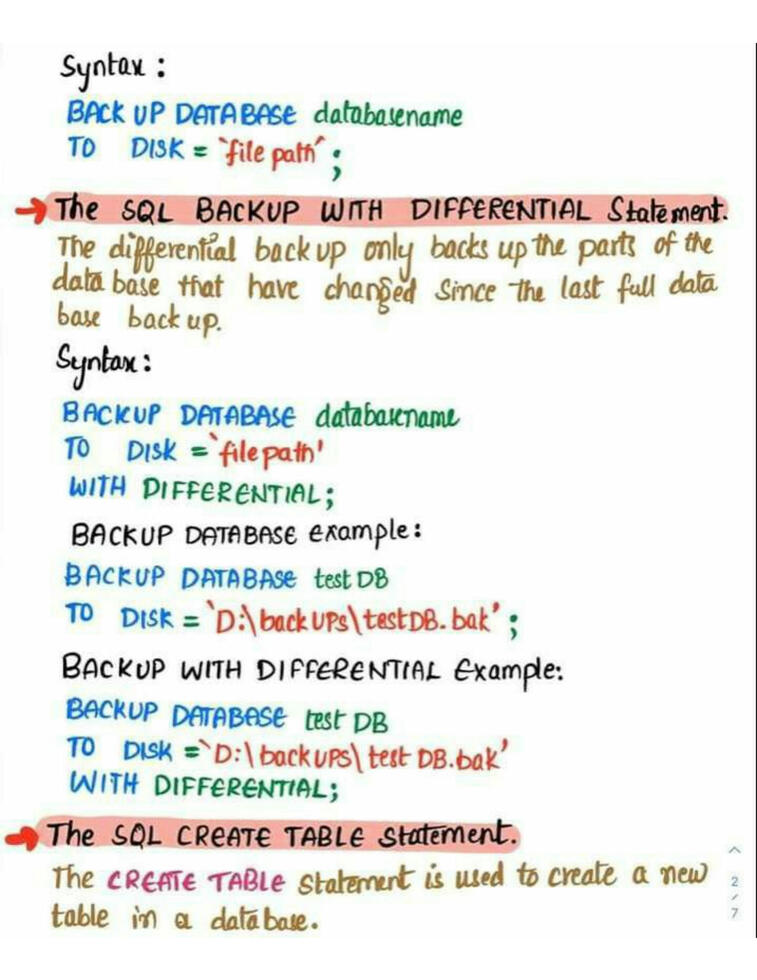 Syntax :
BACK UP DATABASE databasename
TO DISK = `file path´ ;
→ The SQL BACKUP WITH DIFFERENTIAL Statement.
The differential back up only backs up the parts of the
data base that have changed since the last full data
base back up.
Syntax :
BACKUP DATABASE databasename
TO DISK = `filepath'
WITH DIFFERENTIAL;
BACKUP DATABASE example:
BACKUP DATABASE test DB
TO DISK = `D:\backups\testDB.bak' ;
BACKUP WITH DIFFERENTIAL Example:
BACKUP DATABASE test DB
TO DISK = `D:\backups\test DB.bak'
WITH DIFFERENTIAL;
→ The SQL CREATE TABLE Statement.
The CREATE TABLE Statement is used to create a new
table in a database.
2
/
7